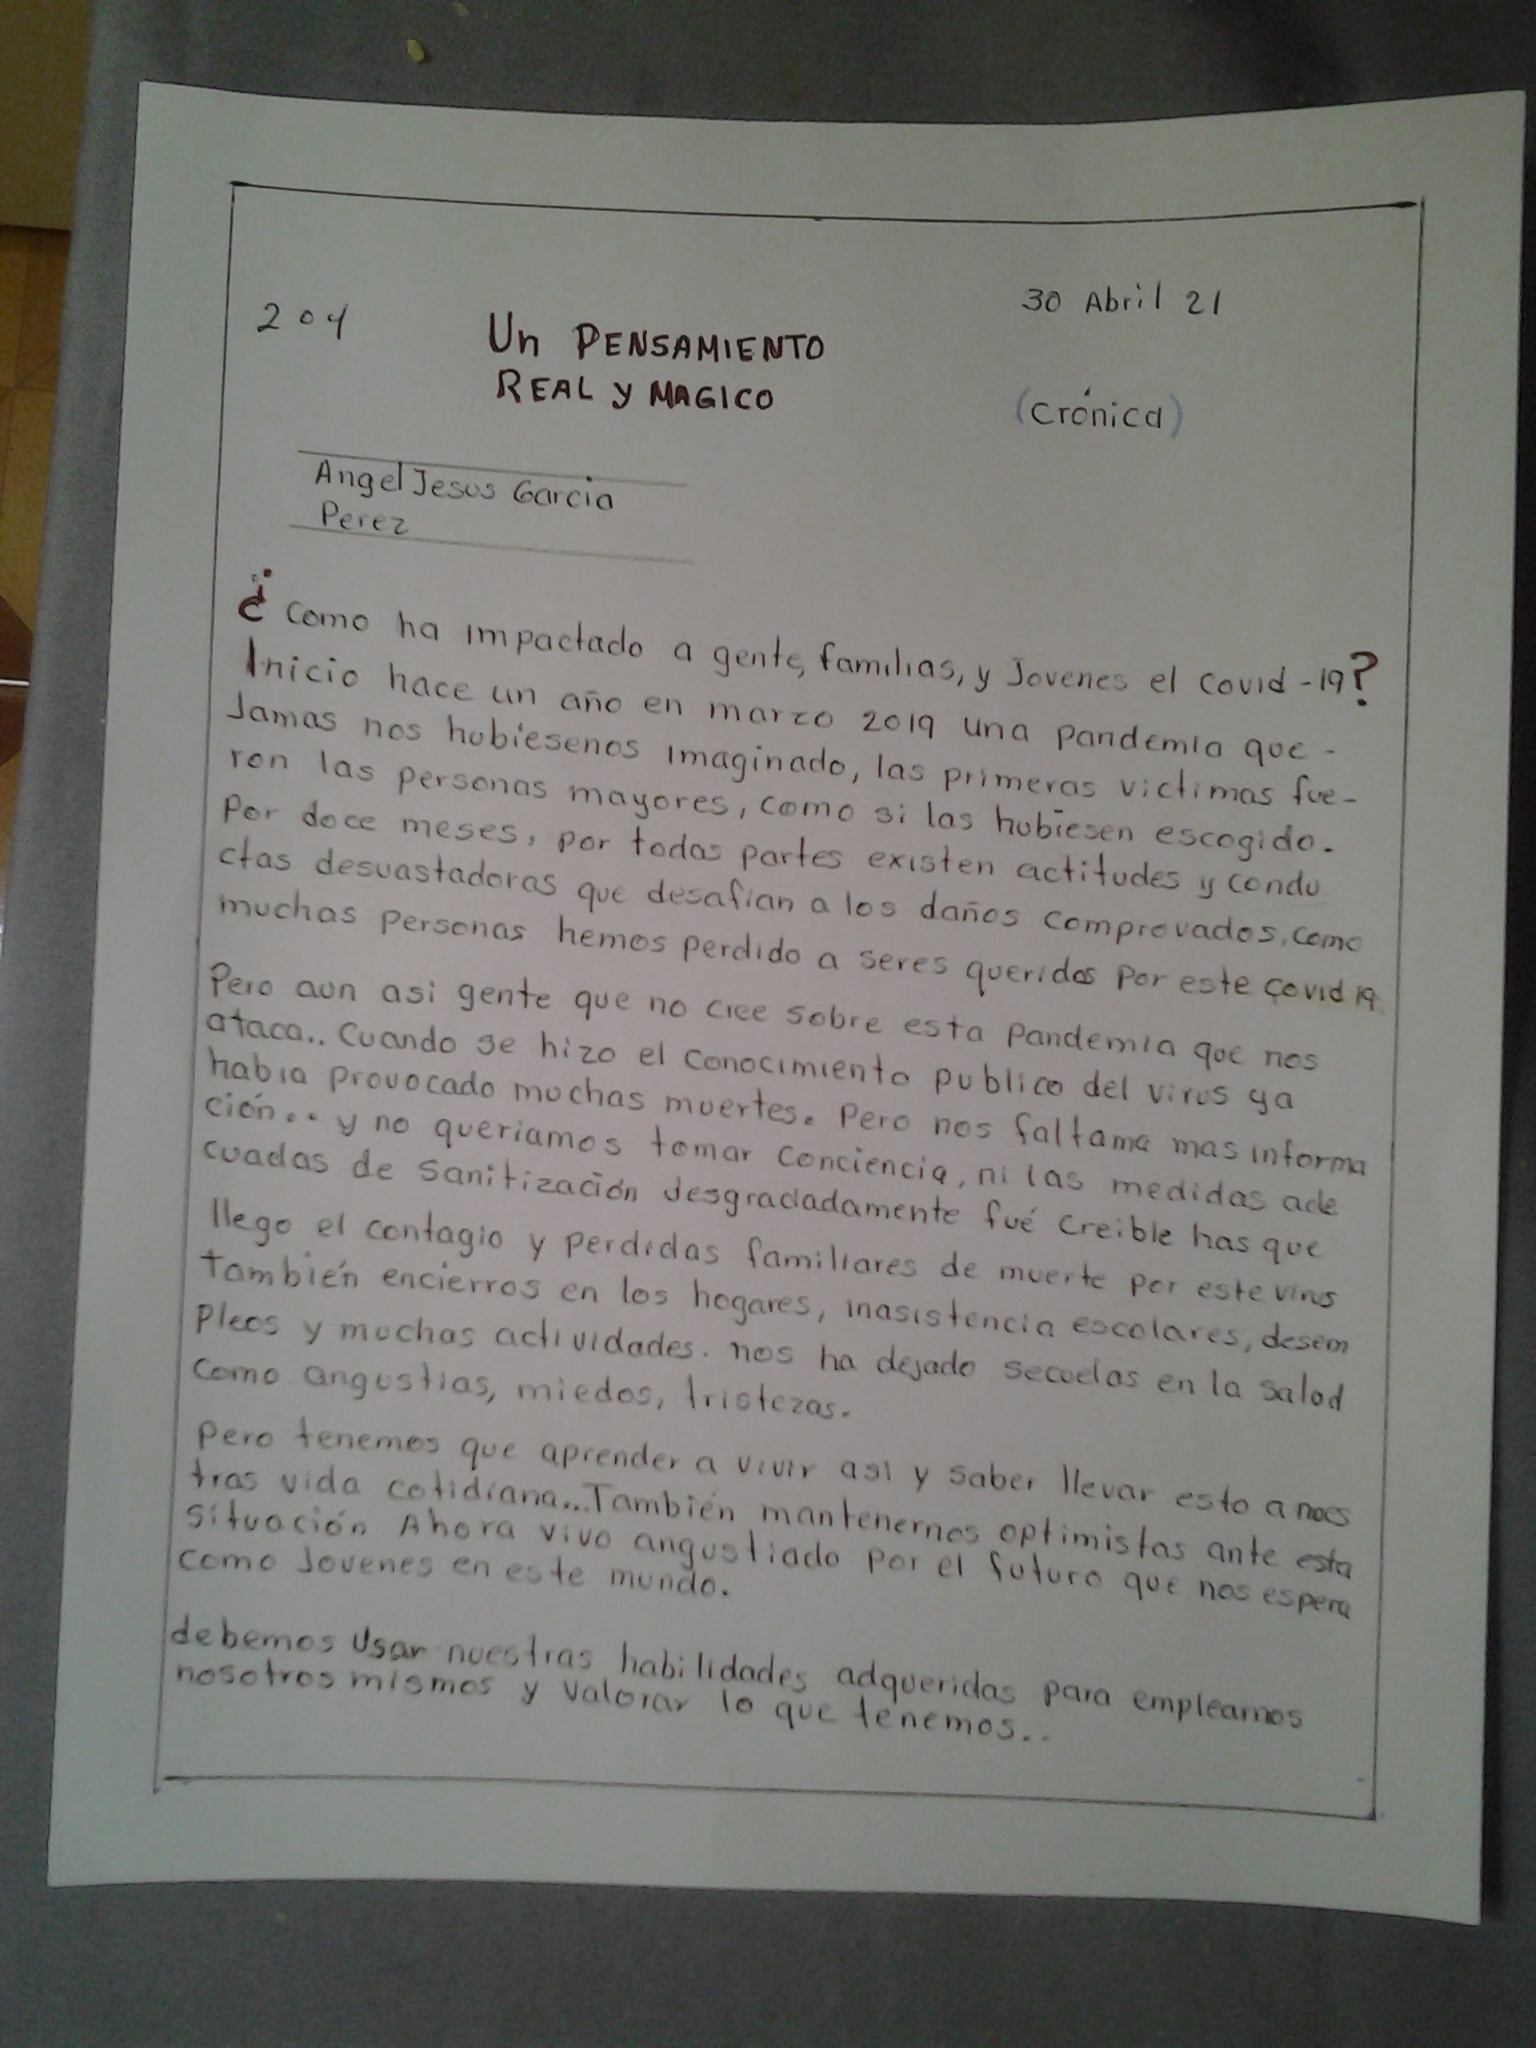 204
30 Abril 21
Un PENSAMIENTO
REAL y MAGICO
(crónica)
Angel Jesus Garcia
Perez
¿ como ha impactado a gente, familias, y Jovenes el covid -19?
Inicio hace un año en marzo 2019 una pandemia que -
Jamas nos hubiesenos imaginado, las primeras victimas fue-
ron las personas mayores, como si las hubiesen escogido.
Por doce meses, por todas partes existen actitudes y condu
ctas desvastadoras que desafian a los daños comprovados, como
muchas personas hemos perdido a seres queridos por este covid 19.
Pero aun asi gente que no cree sobre esta pandemia que nos
ataca.. Cuando se hizo el conocimiento publico del virus ya
habia provocado muchas muertes. Pero nos faltama mas informa
ción.. y no queriamos tomar conciencia, ni las medidas ade
cuadas de sanitización desgraciadamente fué creible has que
llego el contagio y perdidas familiares de muerte por este virus
también encierros en los hogares, inasistencia escolares, desem
pleos y muchas actividades. nos ha dejado secuelas en la salud
como angustias, miedos, tristezas.
pero tenemos que aprender a vivir asi y saber llevar esto a nues
tras vida cotidiana... También mantenernos optimistas ante esta
situación Ahora vivo angustiado por el futuro que nos espera
como Jovenes en este mundo.
debemos Usar nuestras habilidades adqueridas para emplearnos
nosotros mismos y valorar lo que tenemos..